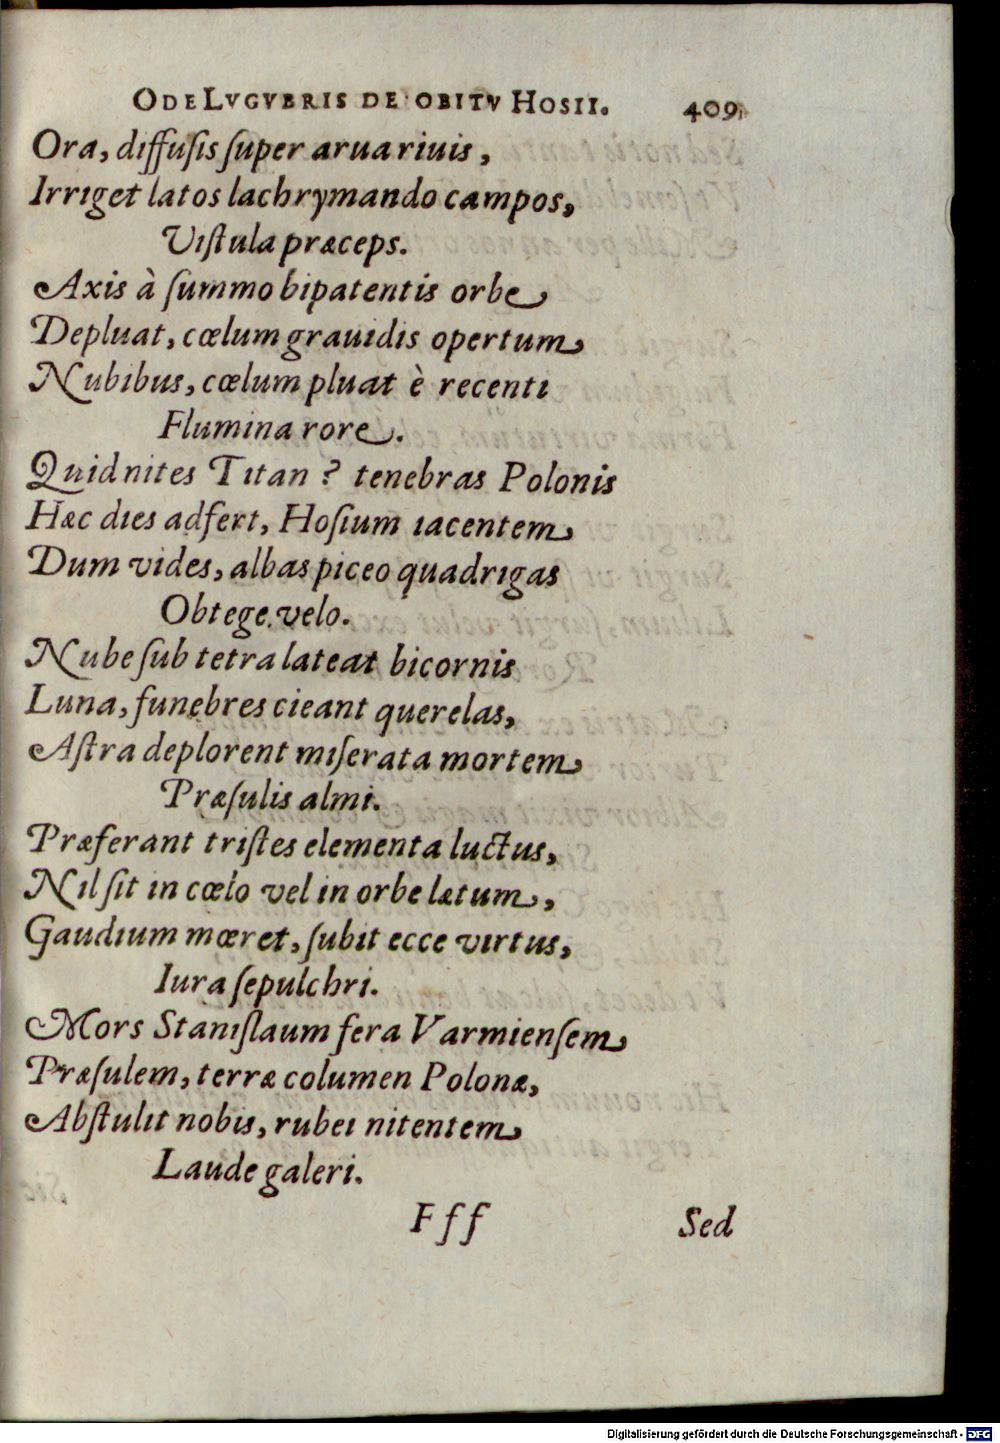 ODE LVGVBRIS DE OBITV HOSII. 409
Ora, diffusis super arua riuis,
Irriget latos lachrymando campos,
Vistula præceps.
Axis à summo bipatentis orbe
Depluat, cœlum grauidis opertum
Nubibus, cœlum pluat è recenti
Flumina rore.
Quid nites Titan? tenebras Polonis
Hæc dies adfert, Hosium iacentem
Dum vides, albas piceo quadrigas
Obtege velo.
Nube sub tetra lateat bicornis
Luna, funebres cieant querelas,
Astra deplorent miserata mortem
Præsulis almi.
Præferant tristes elementa luctus,
Nil sit in cœlo vel in orbe lætum,
Gaudium mœret, subit ecce virtus,
Iura sepulchri.
Mors Stanislaum fera Varmiensem
Præsulem, terræ columen Polonæ,
Abstulit nobis, rubei nitentem
Laude galeri.
Fff Sed
Digitalisierung gefördert durch die Deutsche Forschungsgemeinschaft - DFG